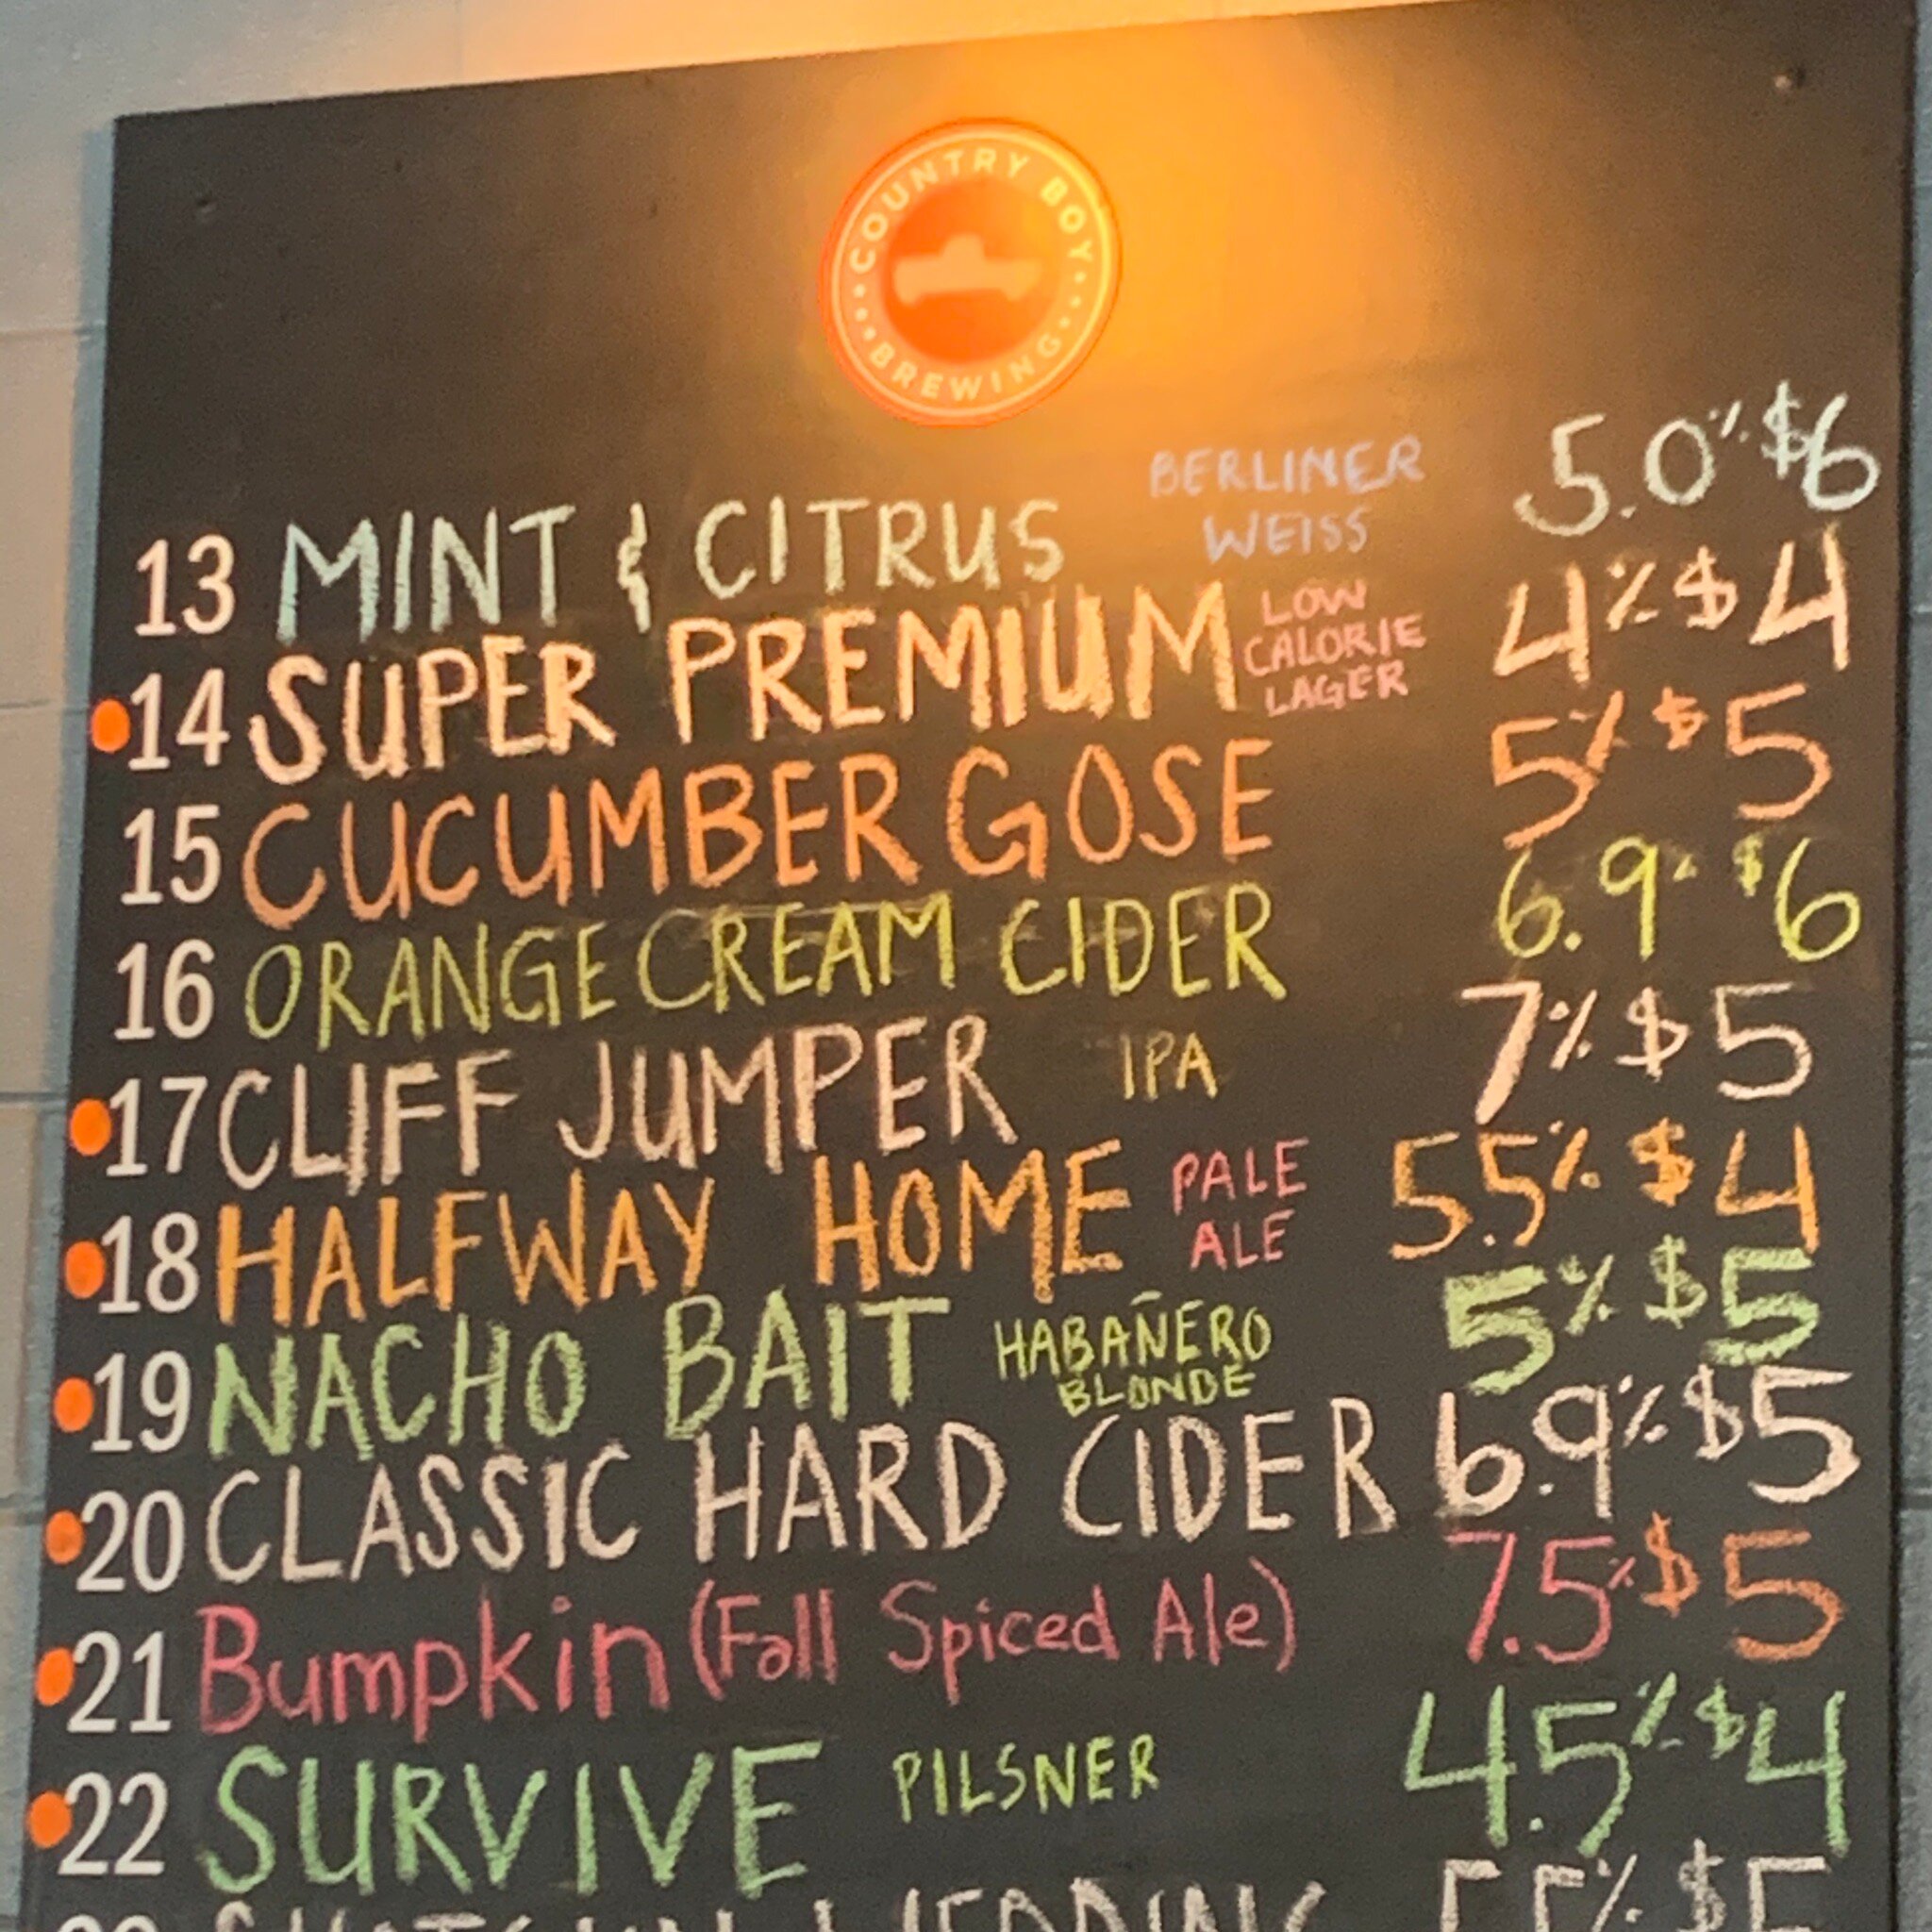 COUNTRY BOY
BREWING
13 MINT & CITRUS BERLINER WEISS 5.0% $6
14 SUPER PREMIUM LOW CALORIE LAGER 4% $4
15 CUCUMBER GOSE 5% $5
16 ORANGE CREAM CIDER 6.9% $6
17 CLIFF JUMPER IPA 7% $5
18 HALFWAY HOME PALE ALE 5.5% $4
19 NACHO BAIT HABAÑERO BLONDE 5% $5
20 CLASSIC HARD CIDER 6.9% $5
21 Bumpkin (Fall Spiced Ale) 7.5% $5
22 SURVIVE PILSNER 4.5% $4
WEDDING 5.5% $5